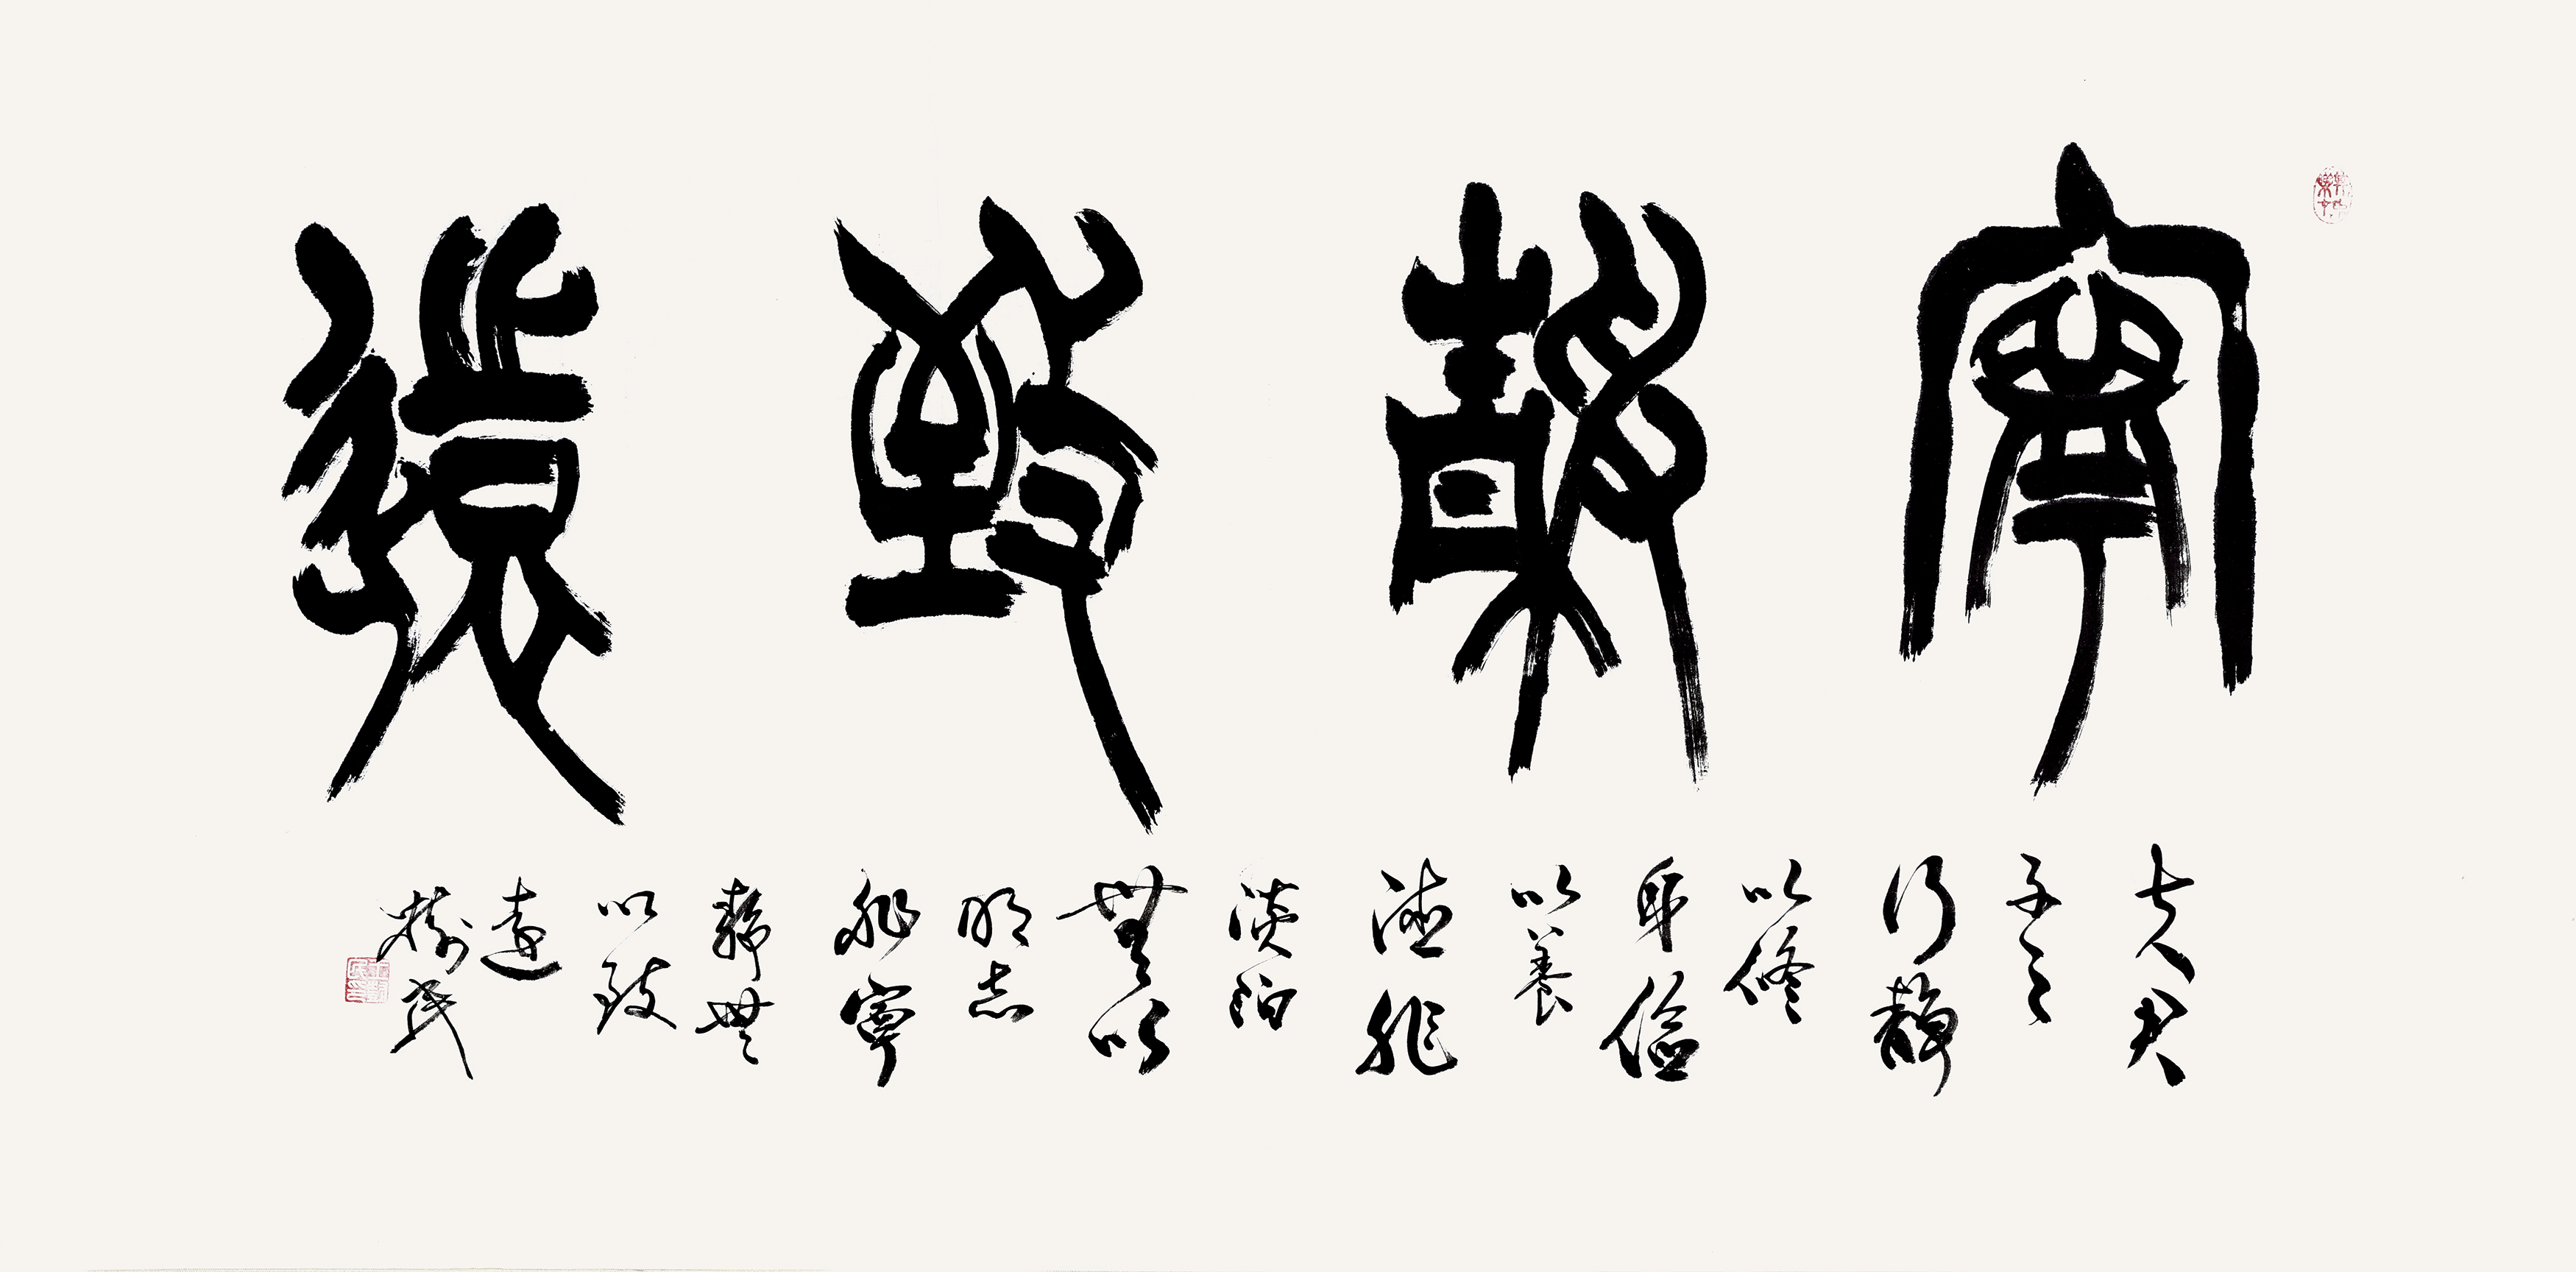 寧靜致遠
夫君
子之
行靜
以修
身儉
以養
德非
淡泊
無以
明志
非寧
靜無
以致
遠
樹民